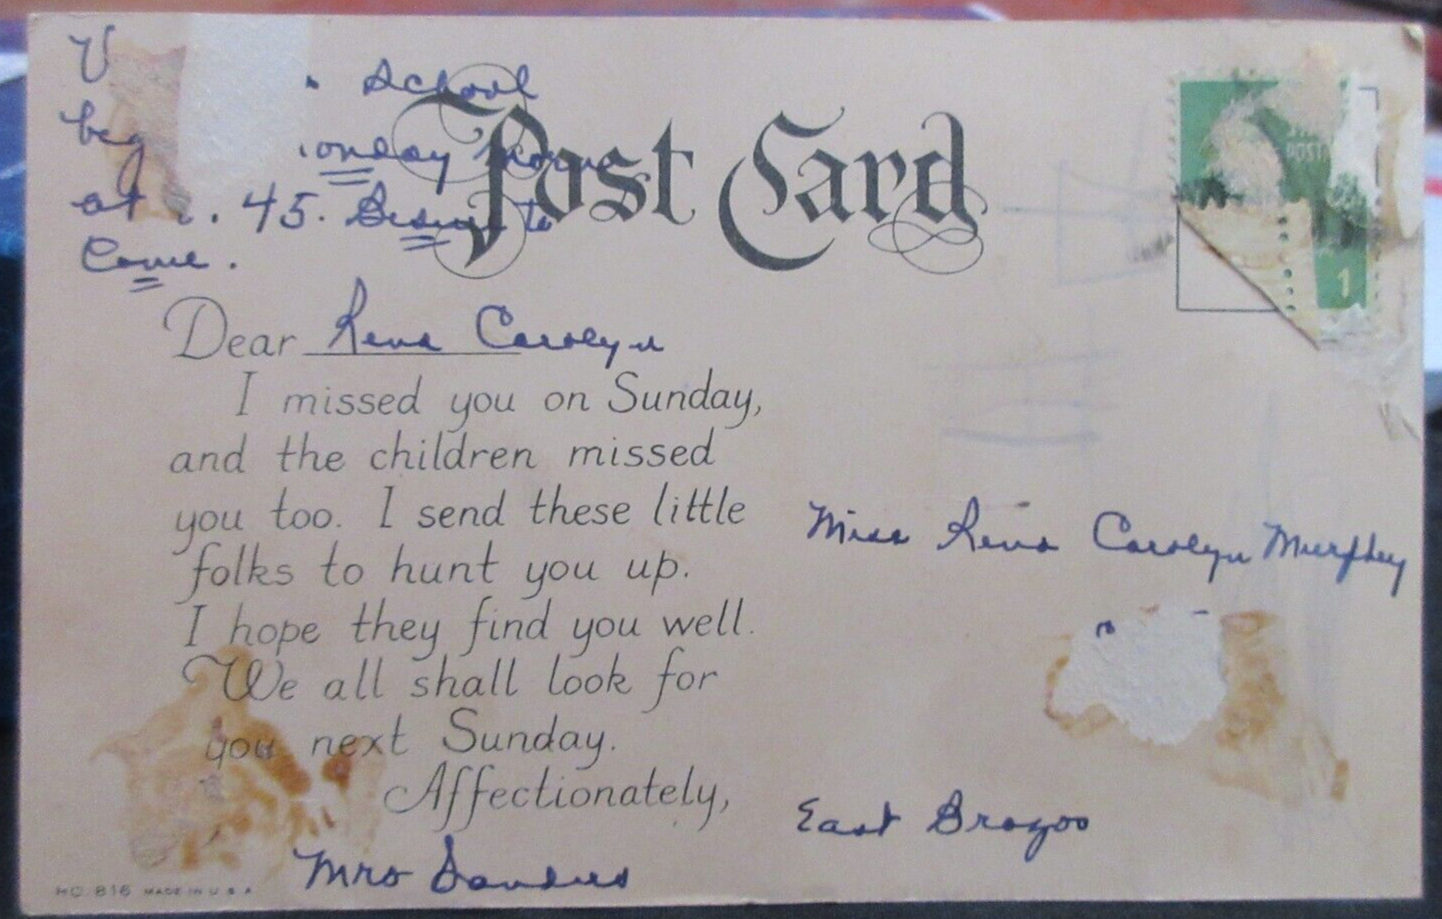 School
at . 45. to
Come.
Post Card
POST
1
Dear Rena Carolyn
I missed you on Sunday,
and the children missed
you too. I send these little
folks to hunt you up.
I hope they find you well.
We all shall look for
you next Sunday.
Affectionately,
Mrs
Miss Rena Carolyn Murphey
East Brazos
NO. 816 MADE IN U S A